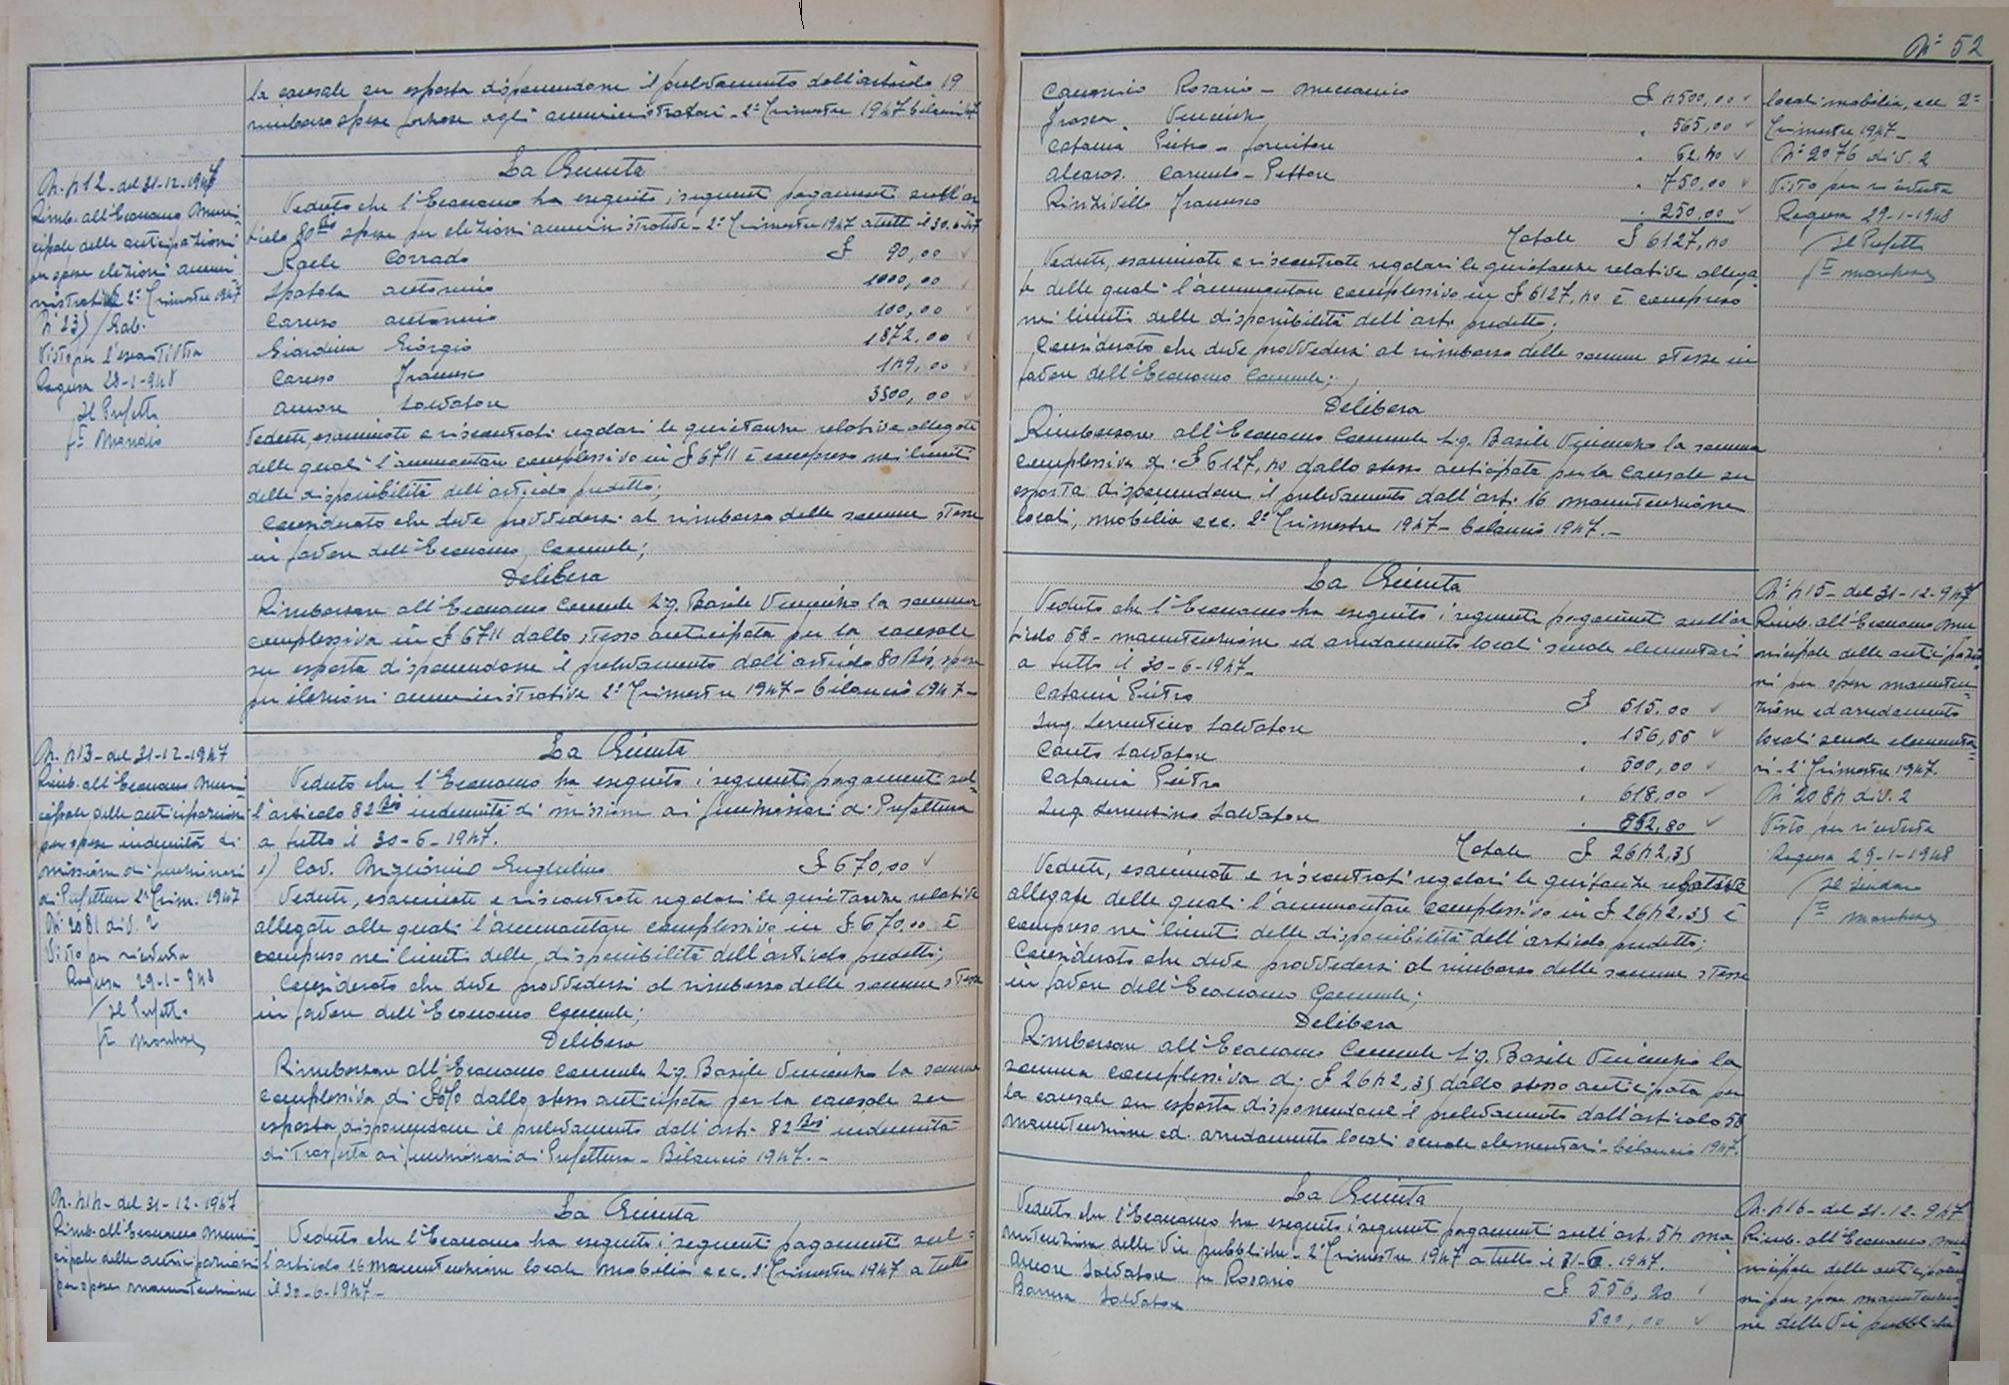 la causale su esposta disponendone il prelevamento dall'articolo 19
rimborso spese forzose agli amministratori - 2° Trimestre 1947 bilancio 1947
N. 412 - del 31-12-1947
Rimb. all'Economo Muni
cipale delle anticipazioni
per spese elezioni ammi
nistrative 2° Trimestre 1947
N° 235/Gab.
Visto per l'esecutività
Ragusa 28-1-948
Il Prefetto
La Giunta
Veduto che l'Economo ha eseguito i seguenti pagamenti sull'ar
ticolo 80 bis spese per elezioni amministrative - 2° Trimestre 1947 a tutto il 30-6-47
Raele Corrado £ 90,00
Spatola Antonino 1000,00
Caruso Antonino 100,00
Giardina Giorgio 1872,00
Caruso Francesco 149,00
Amore Salvatore 3500,00
Vedute, esaminate e riscontrati regolari le quietanze relative allegate
delle quali l'ammontare complessivo in £ 6711 è compreso nei limiti
delle disponibilità dell'articolo predetto;
Considerato che deve provvedersi al rimborso delle somme stesse
in favore dell'Economo Comunale;
Delibera
Rimborsare all'Economo Comunale Sig. Basile Vincenzo la somma
complessiva in £ 6711 dallo stesso anticipata per la causale
su esposta disponendone il prelevamento dall'articolo 80 bis, spese
per elezioni amministrative 2° Trimestre 1947 - bilancio 1947 -
N. 413 - del 31-12-1947
Rimb. all'Economo Muni
cipale delle anticipazioni
per spese indennità di
missione ai funzionari
di Prefettura 2° Trim. 1947
N° 2081 div. 2
Visto per ricevuta
Ragusa 29-1-948
Il Prefetto
La Giunta
Veduto che l'Economo ha eseguito i seguenti pagamenti sul-
l'articolo 82 bis indennità di missione ai funzionari di Prefettura
a tutto il 30-6-1947.
1) Cav. Guglielmo £ 670,00
Vedute, esaminate e riscontrate regolari le quietanze relative
allegate alle quali l'ammontare complessivo in £ 670,00 è
compreso nei limiti delle disponibilità dell'articolo predetti;
Considerato che deve provvedersi al rimborso delle somme stesse
in favore dell'Economo Comunale;
Delibera
Rimborsare all'Economo Comunale Sig. Basile Vincenzo la somma
complessiva di £ 670 dallo stesso anticipata per la causale su
esposta disponendone il prelevamento dall'art. 82 bis indennità
di trasferta ai funzionari di Prefettura - Bilancio 1947. -
N. 414 - del 31-12-1947
Rimb. all'Economo Muni-
cipale delle anticipazioni
per spese manutenzione
La Giunta
Veduto che l'Economo ha eseguito i seguenti pagamenti sul-
l'articolo 16 manutenzione locale mobilia ecc. 2° Trimestre 1947 a tutto
il 30-6-1947 -
N° 52
Rosario - meccanico £ 4500,00
Frasca Vincenzo 565,00
Catania Pietro - fornitore 62,40
Carmelo - Pittore 750,00
Rinzivillo Francesco 250,00
Totale £ 6127,40
locali mobilia, ecc 2°
Trimestre 1947 -
N° 2076 div. 2
Visto per ricevuta
Ragusa 29-1-1948
Il Prefetto
Vedute, esaminate e riscontrate regolari le quietanze relative allega
te delle quali l'ammontare complessivo in £ 6127,40 è compreso
nei limiti delle disponibilità dell'art. predetto;
Considerato che deve provvedersi al rimborso delle somme stesse in
favore dell'Economo Comunale;
Delibera
Rimborsare all'Economo Comunale Sig. Basile Vincenzo la somma
complessiva di £ 6127,40 dallo stesso anticipata per la causale su
esposta disponendone il prelevamento dall'art. 16 manutenzione
locali, mobilia ecc. 2° Trimestre 1947 - bilancio 1947. -
La Giunta
Veduto che l'Economo ha eseguito i seguenti pagamenti sull'ar
ticolo 58 - manutenzione ed arredamento locali scuole elementari
a tutto il 30-6-1947 -
Catania Pietro £ 515,00
Ing. Sorrentino Salvatore 156,55
Salvatore 500,00
Catania Pietro 618,00
Ing. Sorrentino Salvatore 852,80
Totale £ 2642,35
N° 415 - del 31-12-947
Rimb. all'Economo Mu
nicipale delle anticipazio
ni per spese manuten-
zione ed arredamento
locali scuole elementa-
ri - 2° Trimestre 1947.
N° 2084 div. 2
Visto per ricevuta
Ragusa 29-1-1948
Vedute, esaminate e riscontrati regolari le quietanze relative
allegate delle quali l'ammontare complessivo in £ 2642,35 è
compreso nei limiti delle disponibilità dell'articolo predetto;
Considerato che deve provvedersi al rimborso delle somme stesse
in favore dell'Economo Comunale;
Delibera
Rimborsare all'Economo Comunale Sig. Basile Vincenzo la
somma complessiva di £ 2642,35 dallo stesso anticipata per
la causale su esposta disponendone il prelevamento dall'articolo 58
manutenzione ed arredamento locali scuole elementari - bilancio 1947.
La Giunta
Veduto che l'Economo ha eseguito i seguenti pagamenti sull'art. 54 ma
nutenzione delle Vie pubbliche - 2° Trimestre 1947 a tutto il 31-6-1947.
Amore Salvatore fu Rosario £ 556,20
Salvatore 500,00
N. 416 - del 31-12-947
Rimb. all'Economo Mu
nicipale delle anticipazio
ni per spese manutenzio-
ne delle Vie pubbliche